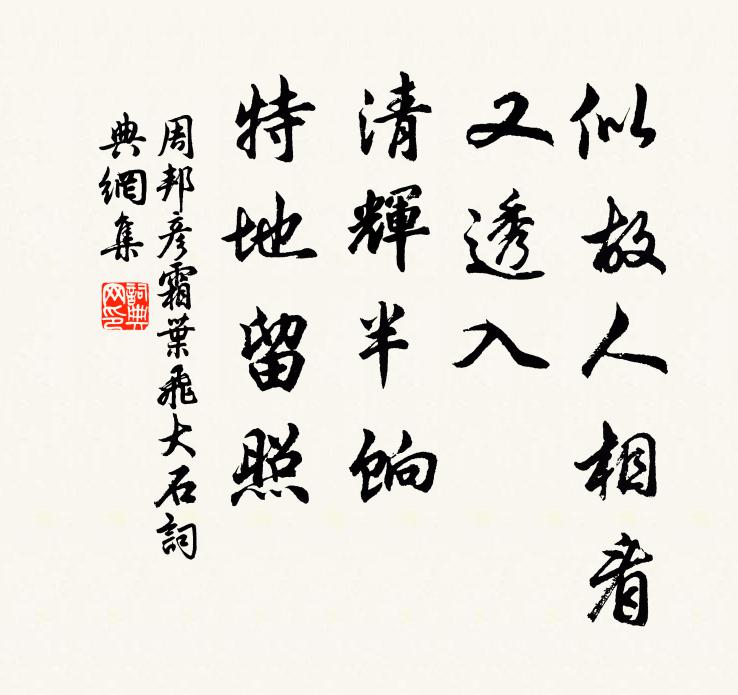 似故人相看
又透入
清輝半餉
特地留照
周邦彥霜葉飛大石詞
典網集
詞典網印